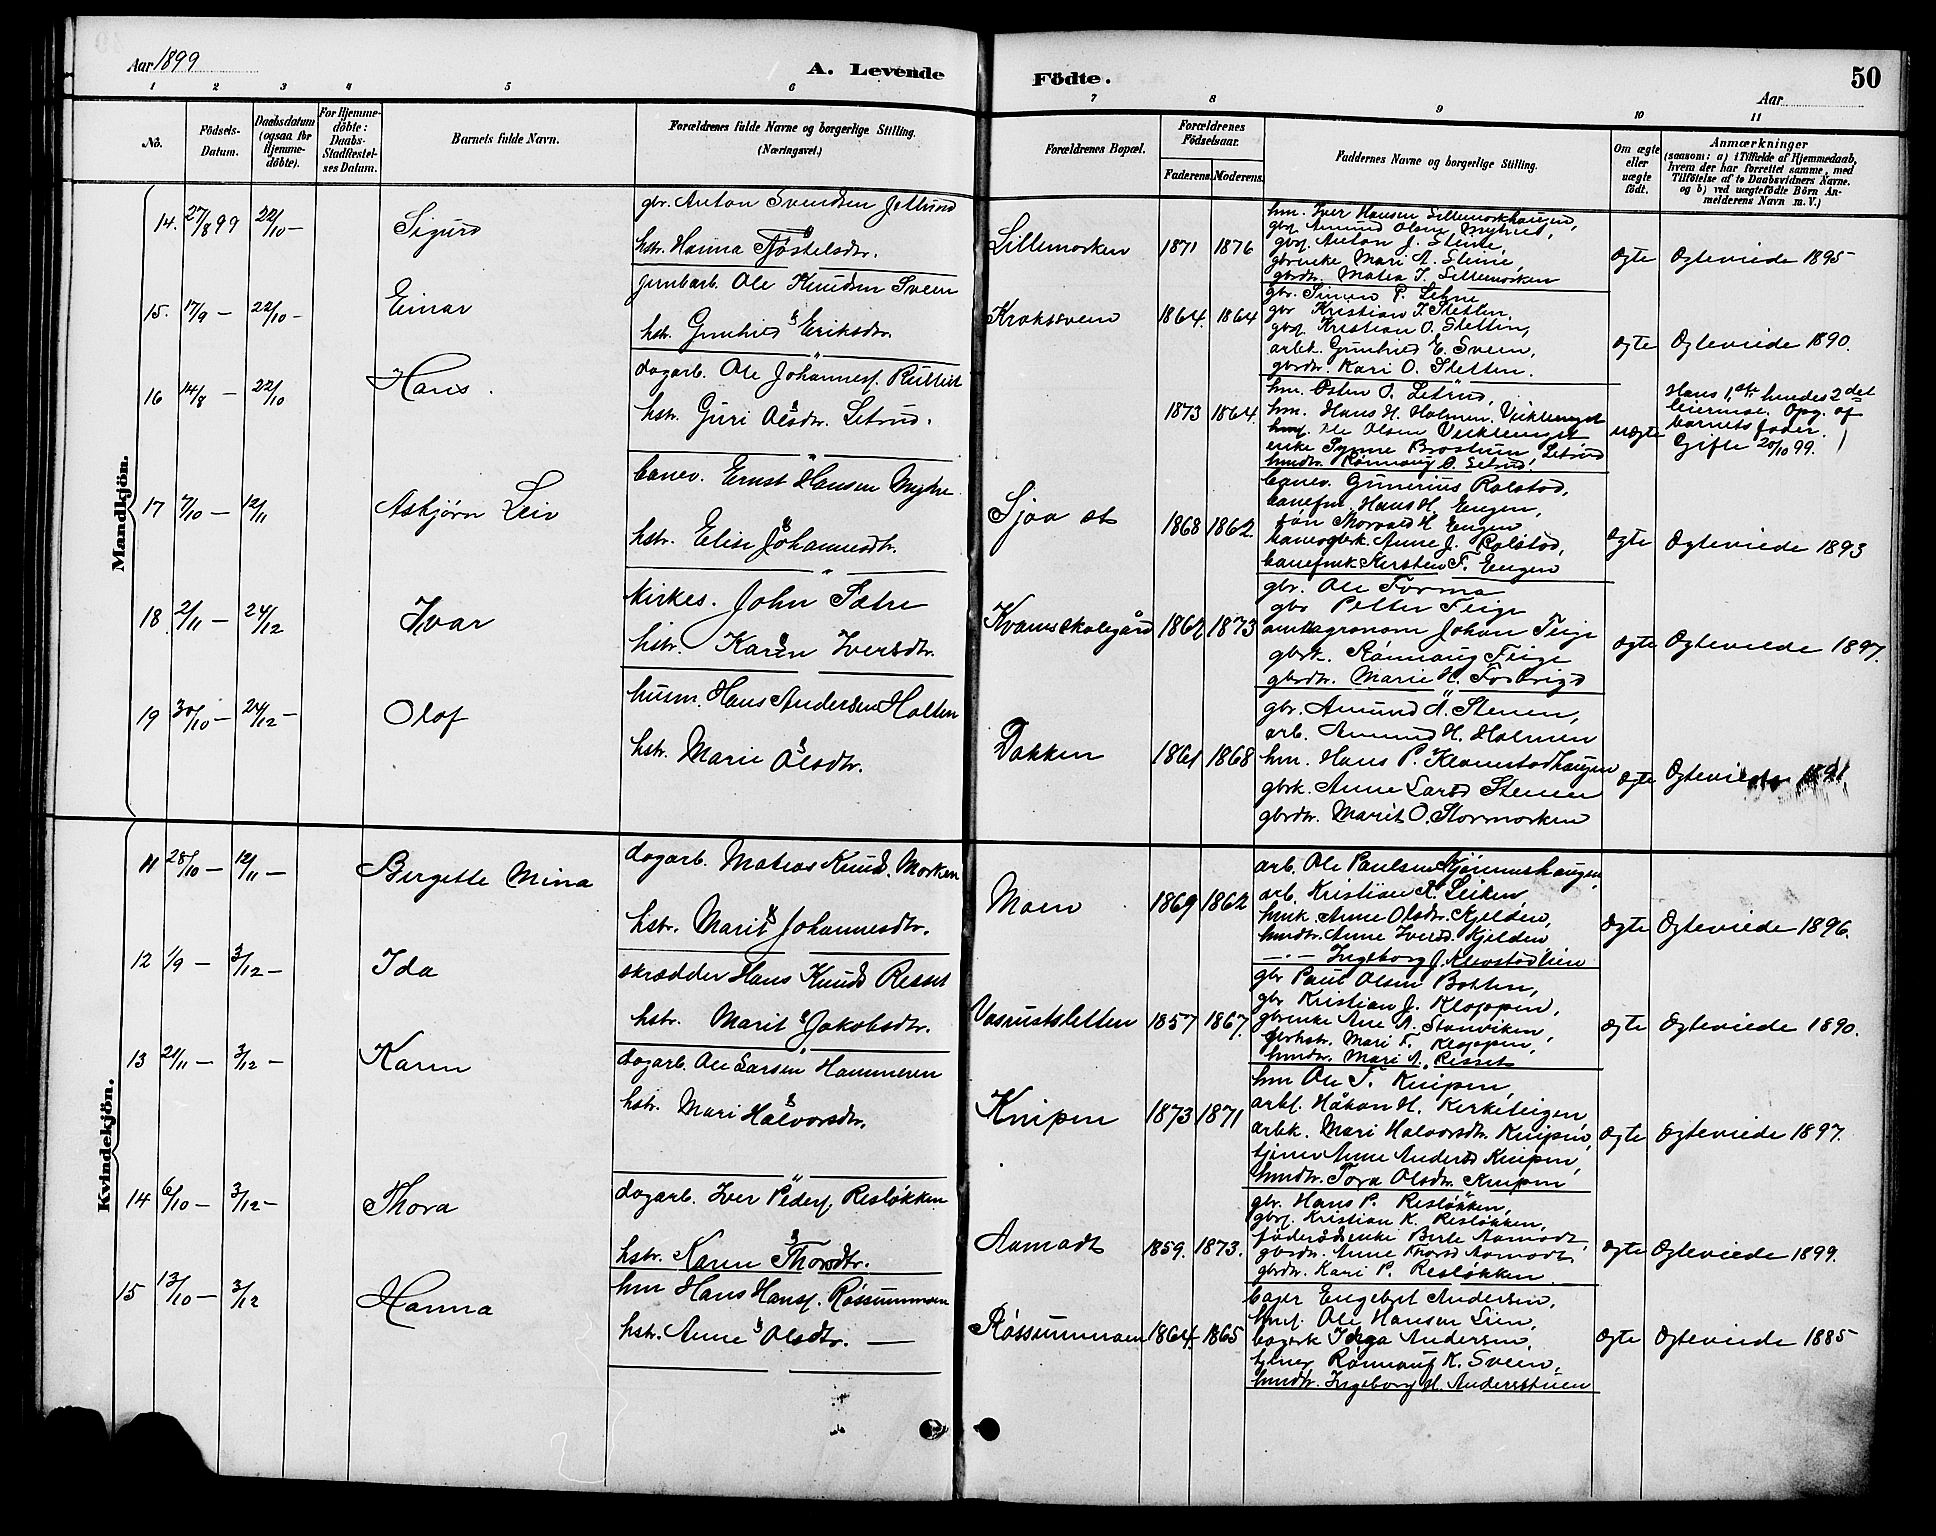 Aar 1899
A. Levende
Födte.
50
Aar
1 2 3 4 5 6 7 8 9 10 11
No.
Födsels-Datum.
Daabsdatum (ogsaa for Hjemmedöbte).
For Hjemmedöbte: Daabs-Stadfestelses Datum.
Barnets fulde Navn.
Forældrenes fulde Navne og borgerlige Stilling. (Næringsvei.)
Forældrenes Bopæl.
Forældrenes Födselsaar.
Faderens. Moderens.
Faddernes Navne og borgerlige Stilling.
Om ægte eller uægte födt.
Anmærkninger (saasom: a) i Tilfælde af Hjemmedaab, hvem der har forrettet samme, med Tilföielse af to Daabsvidners Navne. og b) ved uægtefödte Börn Anmelderens Navn m. V.)
Mandkjön.
14. 27/8 99 22/10 – Sigurd
gbr. Anton Svendsen Jetlund
hstr. Hanna Tjøstelsdtr.
Lillemorken 1871 1876
hm. Iver Hansen Lillemorkhaugen,
gbrs. Amund Olsen Myhre,
gbrs. Anton J. Stene,
gbrenke Mari A. Stene
gbrdtr. Matea I. Lillemorken
ægte Ægteviede 1895
15. 17/9 – 22/10 – Einar
jernbarb. Ole Knudsen Sveen
hstr. Gunhild Eriksdtr.
Kroksveen 1864. 1864
gbr. Simen P. Lehne
gbr Kristian I. Sletten,
gbrs. Kristian O. Sletten,
arbk. Gunhild E. Sveen,
gbrdtr. Kari O. Sletten.
ægte Ægteviede 1890.
16 14/8 – 22/10 Hans.
dagarb. Ole Johannes.
hstr. Guri Olsdtr. Letrud.
1873 1864.
hm. Østen O. Letrud,
hm. Hans H. Holmen. Vikleenget
Ole Olsen Vikleenget
enke Synne Brostuen, Letrud
hmdtr. Rønnaug O. Letrud,
uægte Hans 1ste hendes 2det
leiermaal. Opg. af
barnets fader.
Gifte 20/10 99.
17 7/10 – 12/11 Asbjørn Leiv
banev. Ernst Hansen Myhre
hstr. Elise Johannesdtr.
Sjoa st 1868 1862.
banev. Gunerius Ralstad,
baneform. Hans H. Engen,
søn Thorvald H. Engen
banevogterk. Anne J. Ralstad,
banefmk Kirsten F. Engen
ægte Ægteviede 1893
18 2/11 – 24/12 Ivar
kirkes. John Sætre
hstr. Karen Iversdtr.
Kvams skolegård 1862 1873
gbr. Ole Forma
gbr Petter Teige
amtagronom Johan Teige
gbrk. Rønnaug Teige
gbrdtr. Marie H. Fosbrigd
ægte Ægteviede 1897.
19 30/10 – 24/12 – Olaf
husm. Hans Andersen Holten
hstr. Marie Olsdtr.
Dakken 1861 1868
gbr. Amund A. Stenen,
arb. Amund H. Holmen
hm. Hans P. Klomstadhaugen
gbrk. Anne Larsd Stenen
gbrdtr. Marit O. Stormorken
ægte Ægteviede 1891
Kvindekjön.
11 28/10 – 12/11 – Bergitte Mina
dagarb. Matias Knuds. Morken
hstr. Marit Johannesdtr.
Moen 1869 1862
arb. Ole Paulsen Kjønnushaugen,
arb. Kristian K. Leiken,
hmk. Anne Olsdtr. Kjelden,
hmdtr. Anne Iversd. Kjelden
– " – Ingeborg J. Klevstadlien
ægte Ægteviede 1896.
12 1/9 – 3/12 – Ida
skrædder Hans Knuds Resset
hstr. Marit Jakobsdtr.
Vasrustsletten 1857 1867.
gbr Paul Olsen Botten,
gbr Kristian J. Kloppen,
gbrenke Ane A. Stanviken,
Mari T. Kloppen,
hmdtr. Mari A. Resset
ægte Ægteviede 1890.
13 21/11 – 3/12 – Karen
dagarb. Ole Larsen Hammeren
hstr. Mari Halvorsdtr.
Knipen 1873 1871
hm Ole T. Knipen,
arbs. Håkon H. Kirketeigen,
arbk. Mari Halvorsdtr. Knipen,
tjener Anne Andersd Knipen,
hmdtr. Tora Olsdtr. Knipen
ægte Ægteviede 1897.
14 6/10 – 3/12 – Thora
dagarb. Iver Peders. Resløkken
hstr. Karen Thorsdtr.
Aamodt 1859. 1873.
gbr. Hans P. Resløkken,
gbrs. Kristian K. Resløkken,
føderådsenke Berte Aamodt,
gbrdtr. Anne Thorsd Aamodt,
gbrdtr. Kari P. Resløkken
ægte Ægteviede 1899.
15 13/10 – 3/12 Hanna
hm Hans Hans. Røssummoen
hstr. Anne Olsdtr. –
Røssummoen 1864. 1865
bager Engebret Andersen,
hms. Ole Hansen Lien,
bagerk Inga Andersen,
tjener Rønnaug K. Sveen,
hmdtr. Ingeborg H. Andersstuen
ægte Ægteviede 1885